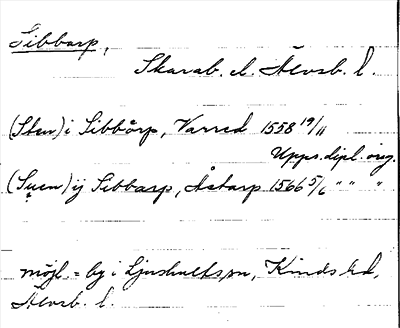 Sibbarp,
Skarab. el. Älvsb. l.
(Sten) i Sibbårp, Varred 1558 19/11
Upps. dipl. orig.
(Suen) ij Sibbarp, Åstarp 1566 5/6 " " "
möjl. = by i Ljushults sn, Kinds hd,
Älvsb. l.